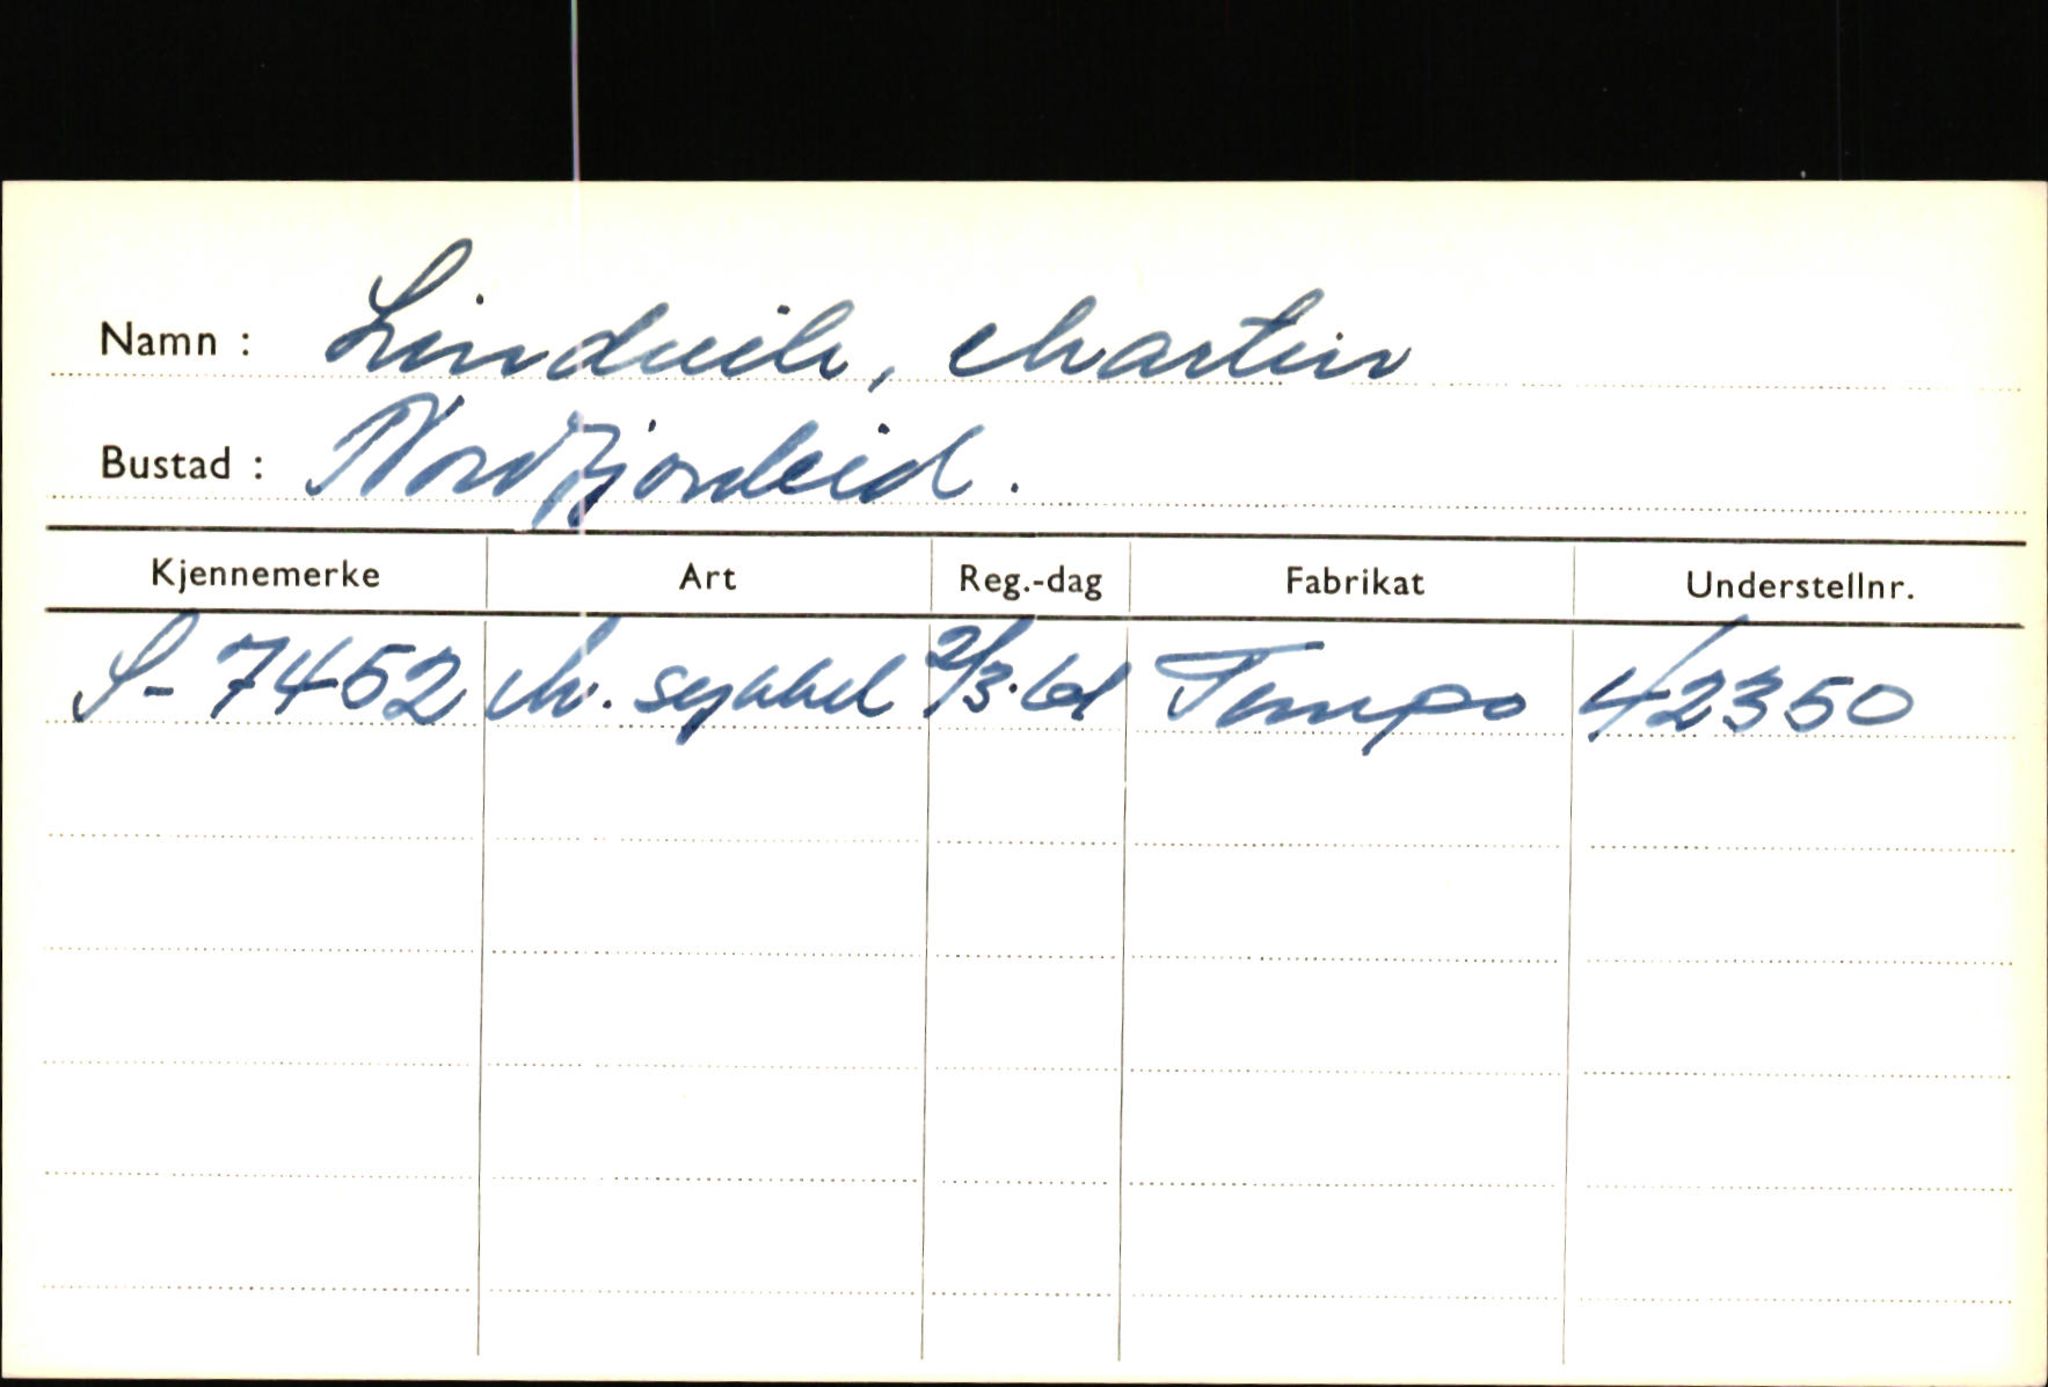 Namn : Lindvik, Martin
Bustad : Nordfjordeid.
Kjennemerke Art Reg.-dag Fabrikat Understellnr.
S-7452 M. sykkel 2/3.61 Tempo 42350